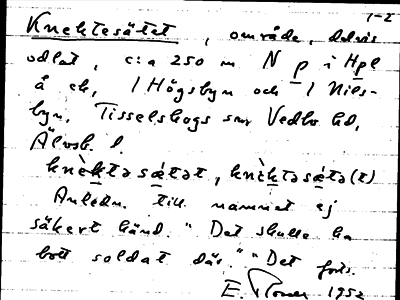 1-2
Knektesätet, område, delvis
odlat, c:a 250 m N p i Hpl
å ek, 1 Högsbyn och 1 Nils-
byn, Tisselskogs sn, Vedbo hd,
Älvsb. l.
knèktə sätət, knèktəsätə(t)
Anledn. till namnet ej
säkert känd. "Det skulle ha
bott soldat där." "Det förs.
E. 1952